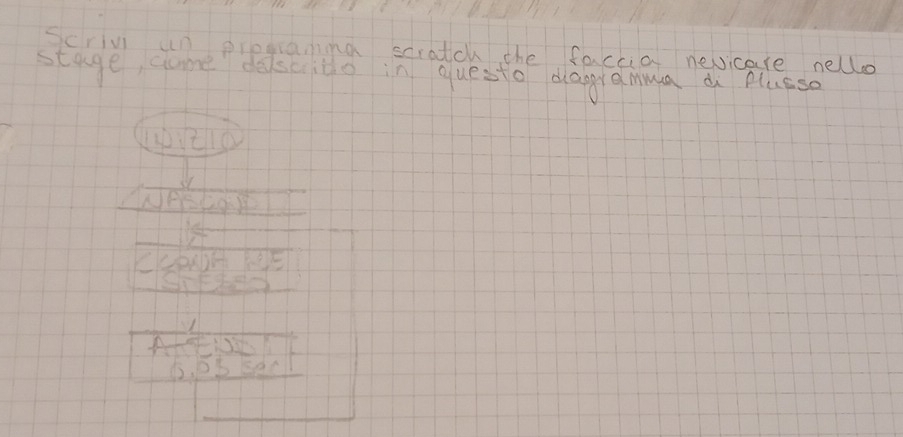 Scrivi un programma scratch che faccia nevicare nello
stage, come descritto in questo diagramma di flusso
INIZIO
NASCONDI
CLONA ME
STESSO
ATTENDI
0,05 sec